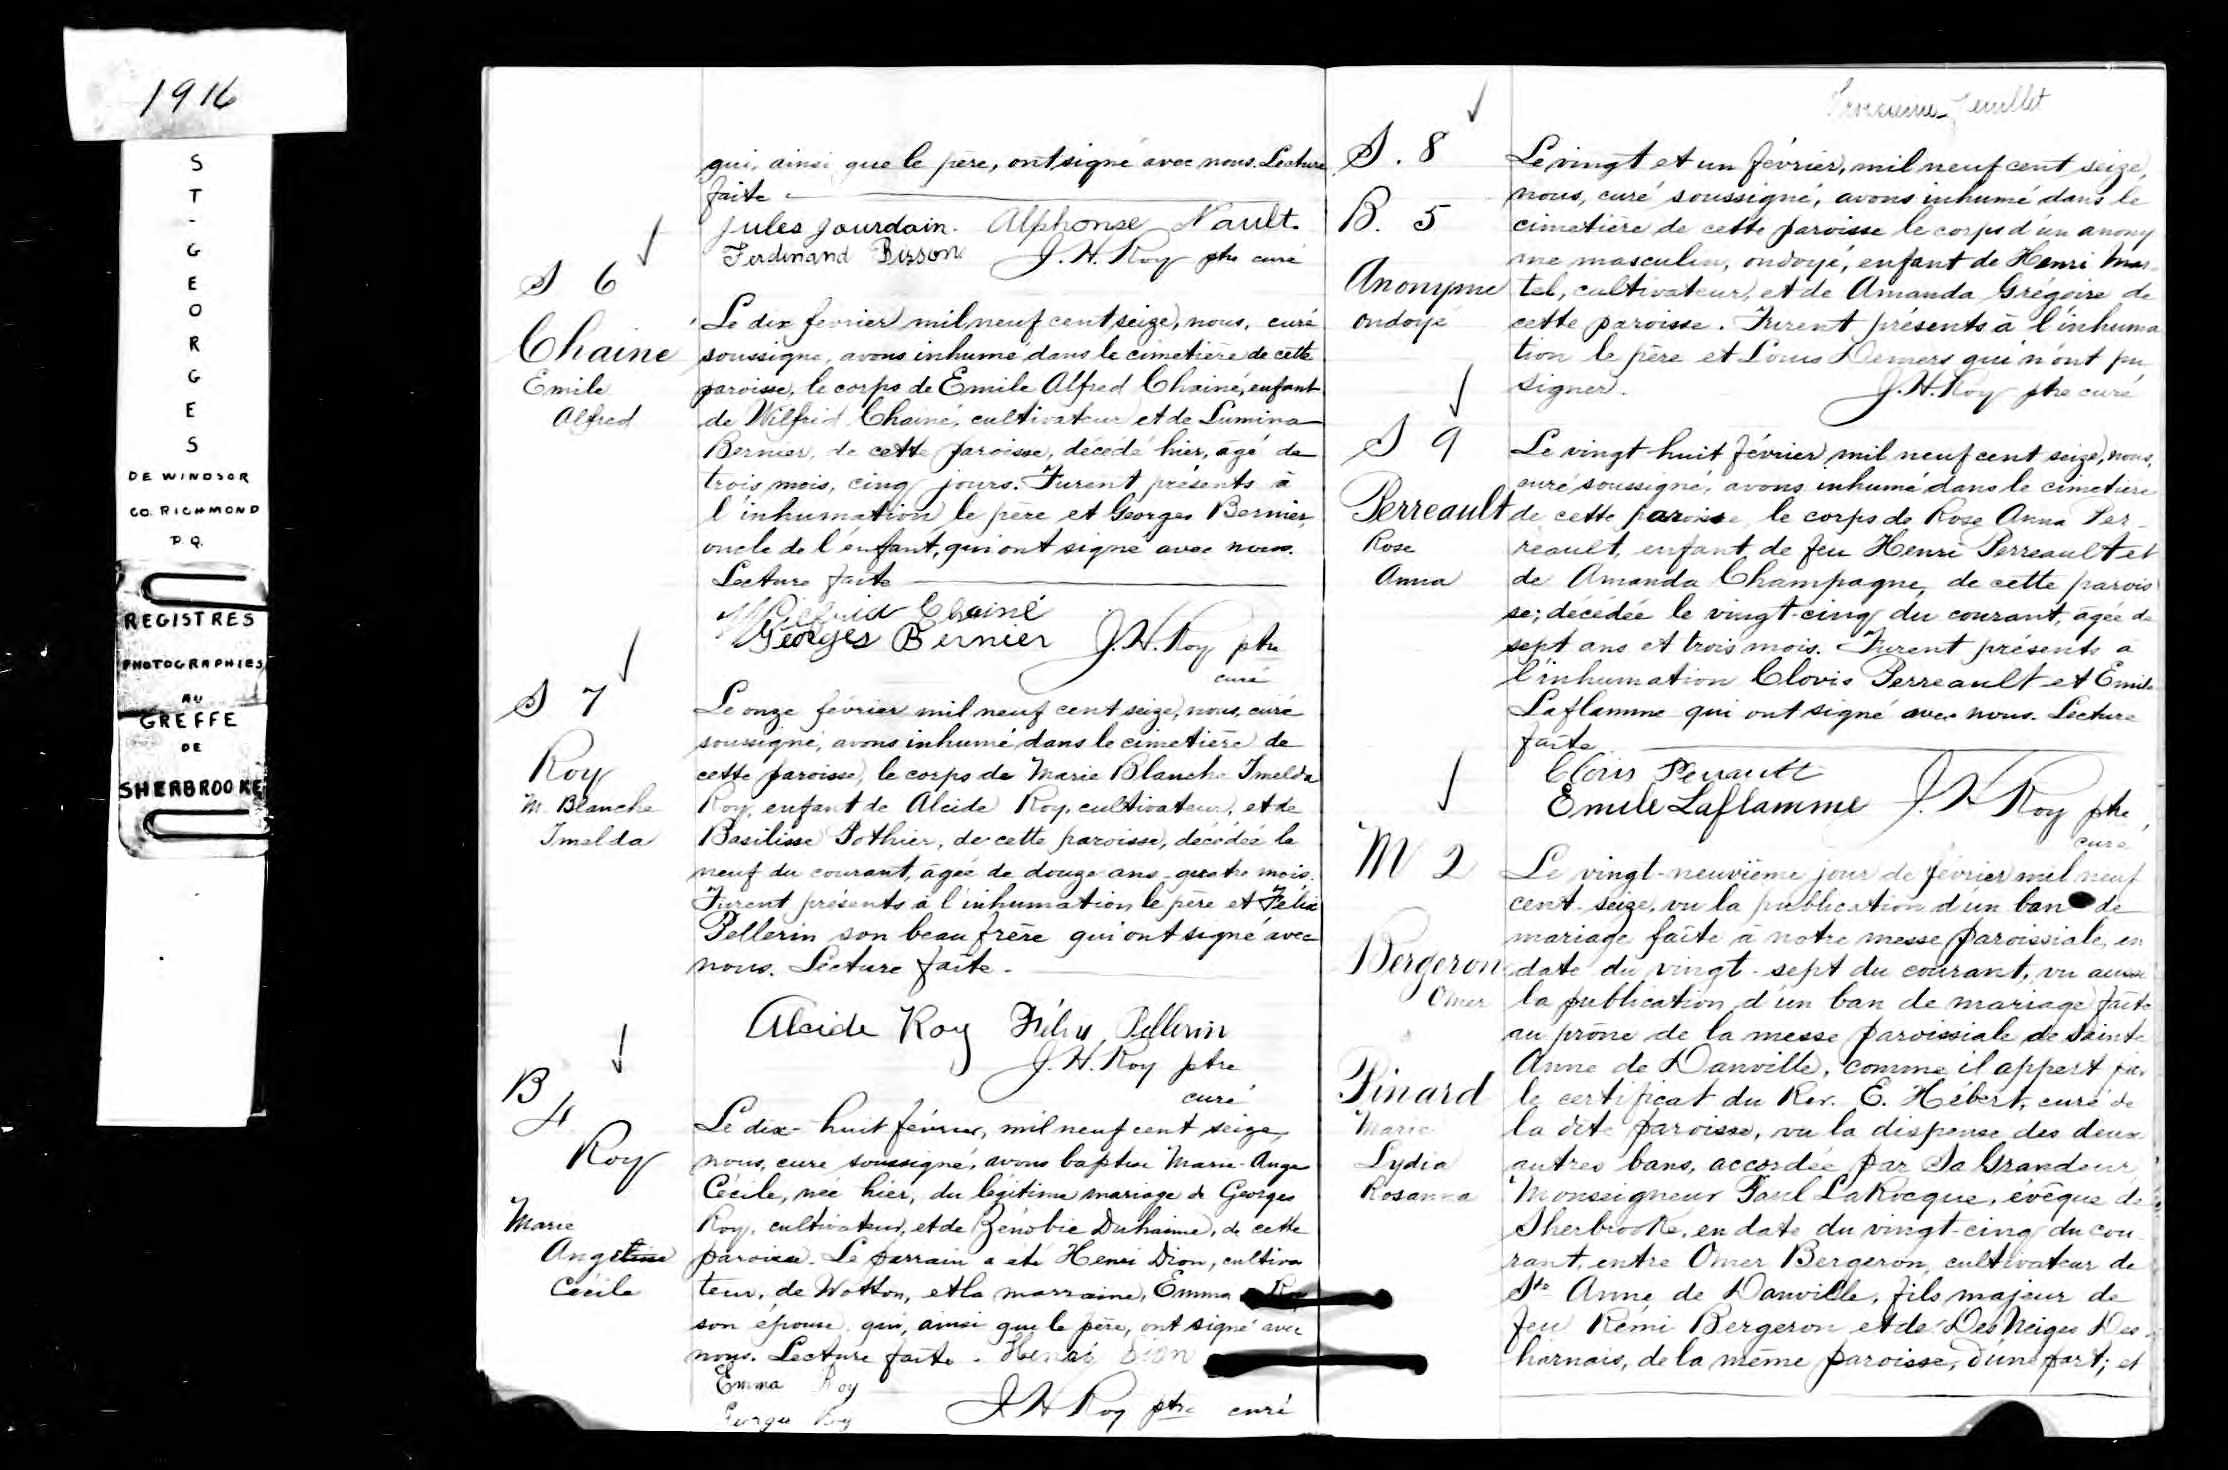 1916
S
T
-
G
E
O
R
G
E
S
DE WINDSOR
CO. RICHMOND
P.Q.
REGISTRES
PHOTOGRAPHIES
AU
GREFFE
DE
SHERBROOKE
qui, ainsi que le père, ont signé avec nous. Lecture
faite.
Jules Jourdain. Alphonse Nault.
Ferdinand Bisson J. H. Roy ptre curé
S 6
Chainé
Emile
Alfred
Le dix fevrier mil neuf cent seize, nous, curé
soussigné, avons inhumé dans le cimetière de cette
paroisse, le corps de Emile Alfred Chainé, enfant
de Wilfrid Chainé, cultivateur et de Lumina
Bernier, de cette paroisse, décédé hier, agé de
trois mois, cinq jours. Furent présents à
l'inhumation le père et Georges Bernier,
oncle de l'enfant, qui ont signé avec nous.
Lecture faite
Wilfrid Chainé
Georges Bernier J. H. Roy ptre
curé
S 7
Roy
M. Blanche
Imelda
Le onze février mil neuf cent seize, nous, curé
soussigné, avons inhumé dans le cimetière de
cette paroisse, le corps de Marie Blanche Imelda
Roy, enfant de Alcide Roy, cultivateur, et de
Basilisse Pothier, de cette paroisse, décédée le
neuf du courant, âgée de douze ans quatre mois.
Furent présents à l'inhumation le père et Félix
Pellerin son beau frère qui ont signé avec
nous. Lecture faite.
Alcide Roy Félix Pellerin
J. H. Roy ptre
curé
B
4
Roy
Marie
Angeline
Cécile
Le dix-huit février, mil neuf cent seize,
nous, curé soussigné, avons baptisé Marie-Ange
Cécile, née hier, du légitime mariage de Georges
Roy, cultivateur, et de Zénobie Duhaime, de cette
paroisse. Le parrain a été Henri Dion, cultiva
teur, de Wotton, et la marraine, Emma Roy
son épouse, qui, ainsi que le père, ont signé avec
nous. Lecture faite. Henri Dion
Emma Roy
Georges Roy J H Roy ptre curé
Troisieme feuillet
S. 8
B. 5
Anonyme
ondoyé
Le vingt et un février, mil neuf cent seize,
nous, curé soussigné, avons inhumé dans le
cimetière de cette paroisse le corps d'un anony
me masculin, ondoyé, enfant de Henri Mar-
tel, cultivateur, et de Amanda Grégoire de
cette paroisse. Furent présents à l'inhuma
tion le père et Louis Demers qui n'ont pu
signer. J. H. Roy ptre curé
S 9
Perreault
Rose
Anna
Le vingt-huit février mil neuf cent seize, nous,
curé soussigné, avons inhumé dans le cimetière
de cette paroisse le corps de Rose Anna Per-
reault, enfant de feu Henri Perreault et
de Amanda Champagne, de cette parois
se; décédée le vingt-cinq du courant, agée de
sept ans et trois mois. Furent présents à
l'inhumation Clovis Perreault et Emile
Laflamme qui ont signé avec nous. Lecture
faite
Clovis Perrault
Emile Laflamme J. H Roy ptre
curé
M 2
Bergeron
Omer
Pinard
Marie
Lydia
Rosanna
Le vingt-neuvième jour de février mil neuf
cent seize, vu la publication d'un ban de
mariage faite à notre messe paroissiale, en
date du vingt-sept du courant, vu aussi
la publication d'un ban de mariage faite
au prône de la messe paroissiale de Sainte
Anne de Danville, comme il appert par
le certificat du Rev. E. Hébert, curé de
la dite paroisse, vu la dispense des deux
autres bans, accordée par Sa Grandeur
Monseigneur Paul LaRocque, évêque de
Sherbrooke, en date du vingt-cinq du cou-
rant, entre Omer Bergeron, cultivateur de
Ste Anne de Danville, fils majeur de
feu Rémi Bergeron et de DesNeiges Des-
harnais, de la même paroisse, d'une part; et